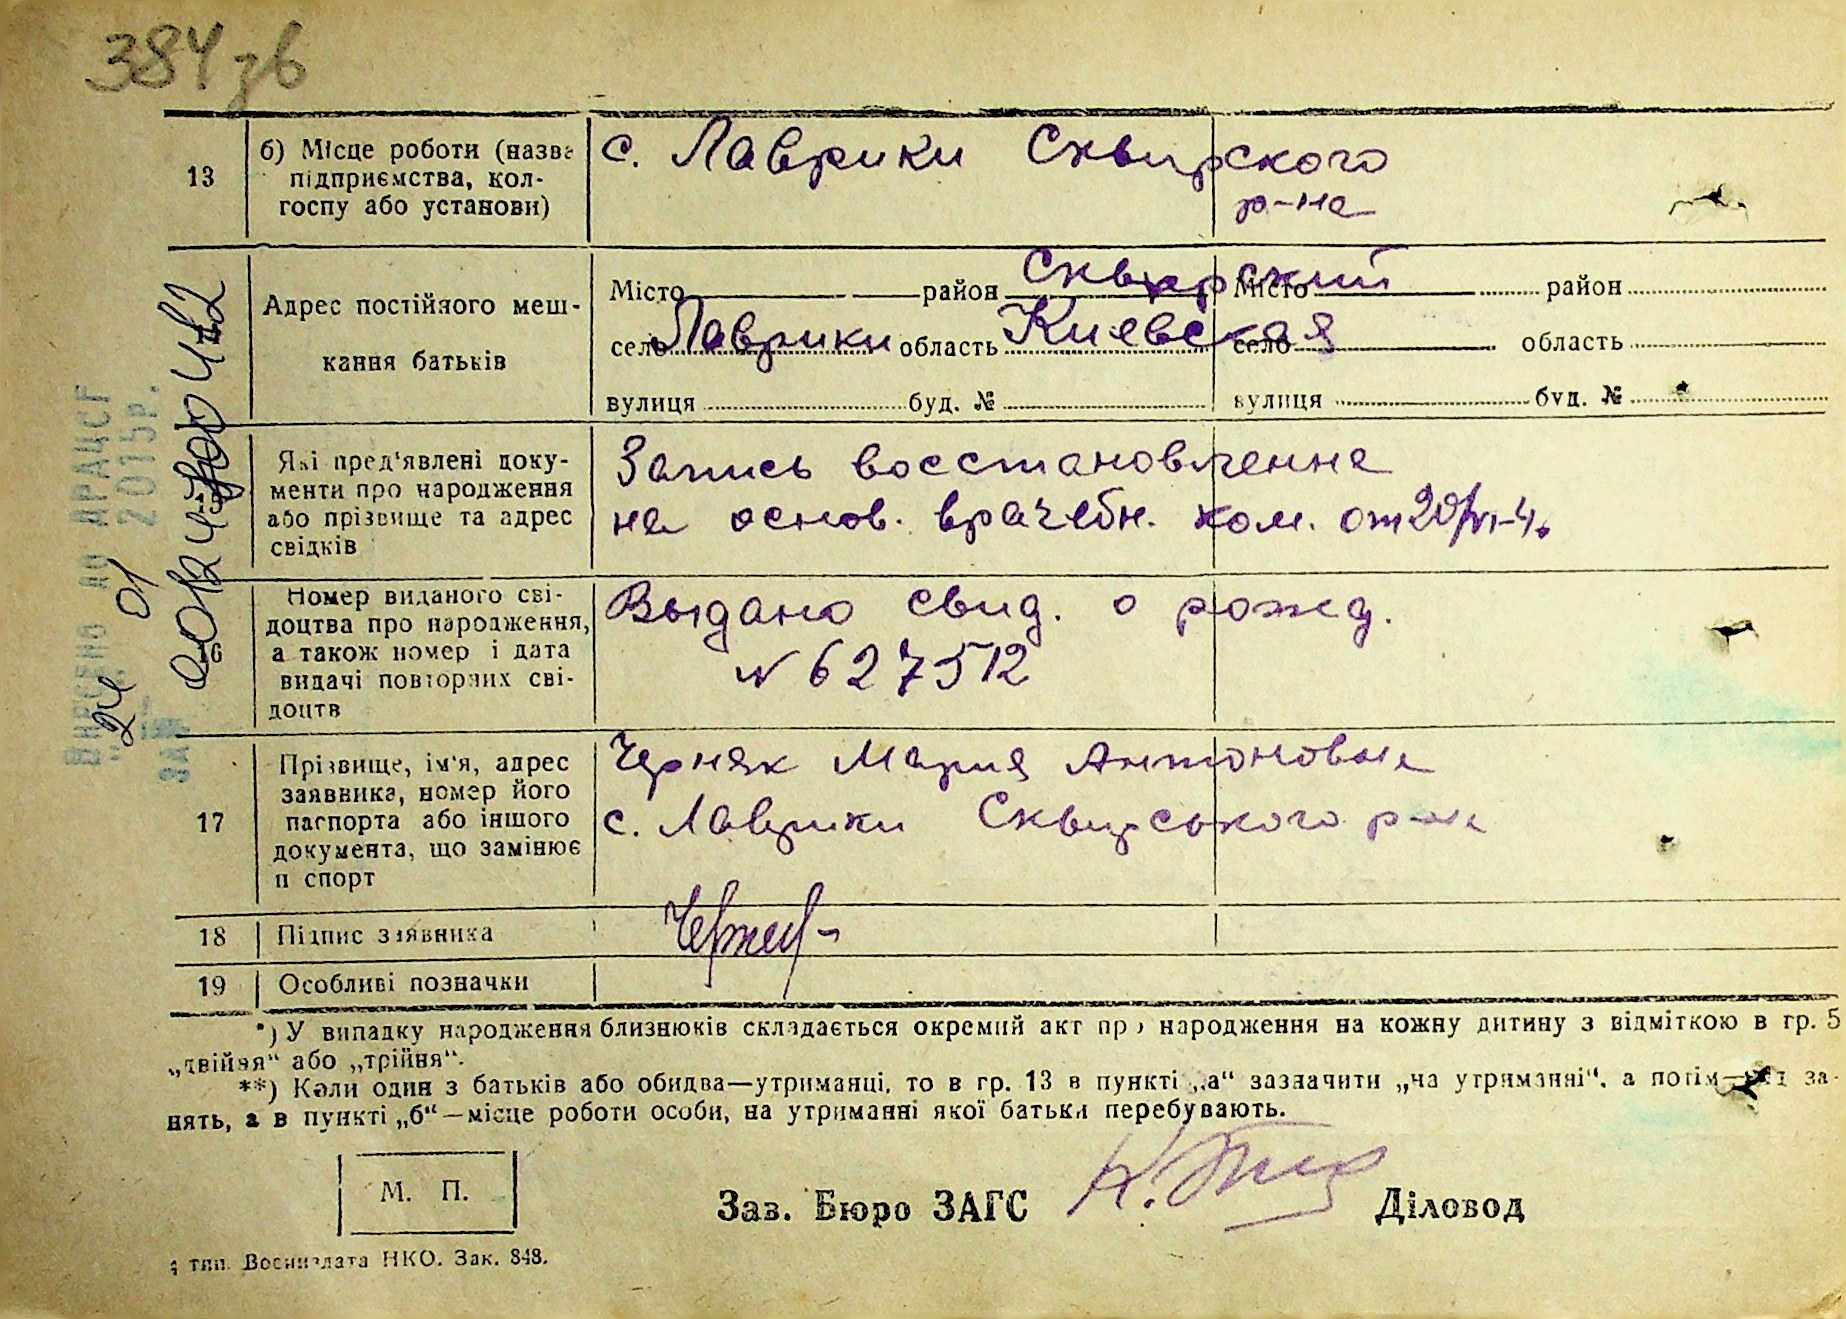 384 зв
13
б) Місце роботи (назва
підприємства, кол-
госпу або установи)
с. Лаврики Сквирского
р-на
Адрес постійного меш-
кання батьків
Місто район Сквирский Місто район
село Лаврики область Киевская село область
вулиця буд. № вулиця буд. №
Які пред'явлені доку-
менти про народження
або прізвище та адрес
свідків
Запись восстановленна
на основ. врачебн. ком. от 20/VI-4
16
Номер виданого сві-
доцтва про народження,
а також номер і дата
видачі повторних сві-
доцтв
Выдано свид. о рожд.
№ 627512
17
Прізвище, ім'я, адрес
заявника, номер його
паспорта або іншого
документа, що замінює
п спорт
Черняк Мария Антоновна
с. Лаврики Сквирського р-на
18 Підпис заявника
19 Особливі позначки
*) У випадку народження близнюків складається окремий акт про народження на кожну дитину з відміткою в гр. 5
„двійня" або „трійня".
**) Коли один з батьків або обидва—утриманці, то в гр. 13 в пункті „а" зазначити „на утриманні", а потім— за-
нять, а в пункті „б"—місце роботи особи, на утриманні якої батьки перебувають.
М. П.
Зав. Бюро ЗАГС Діловод
тип. Воениздата НКО. Зак. 848.
ВНЕСЕНО ДО ДРАЦСГ
24 01 2015р.
ЗА №
00124300442